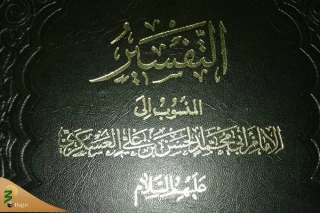 التفسير
المنسوب إلى
الإمام أبي محمد الحسن بن علي العسكري
عليهم السلام